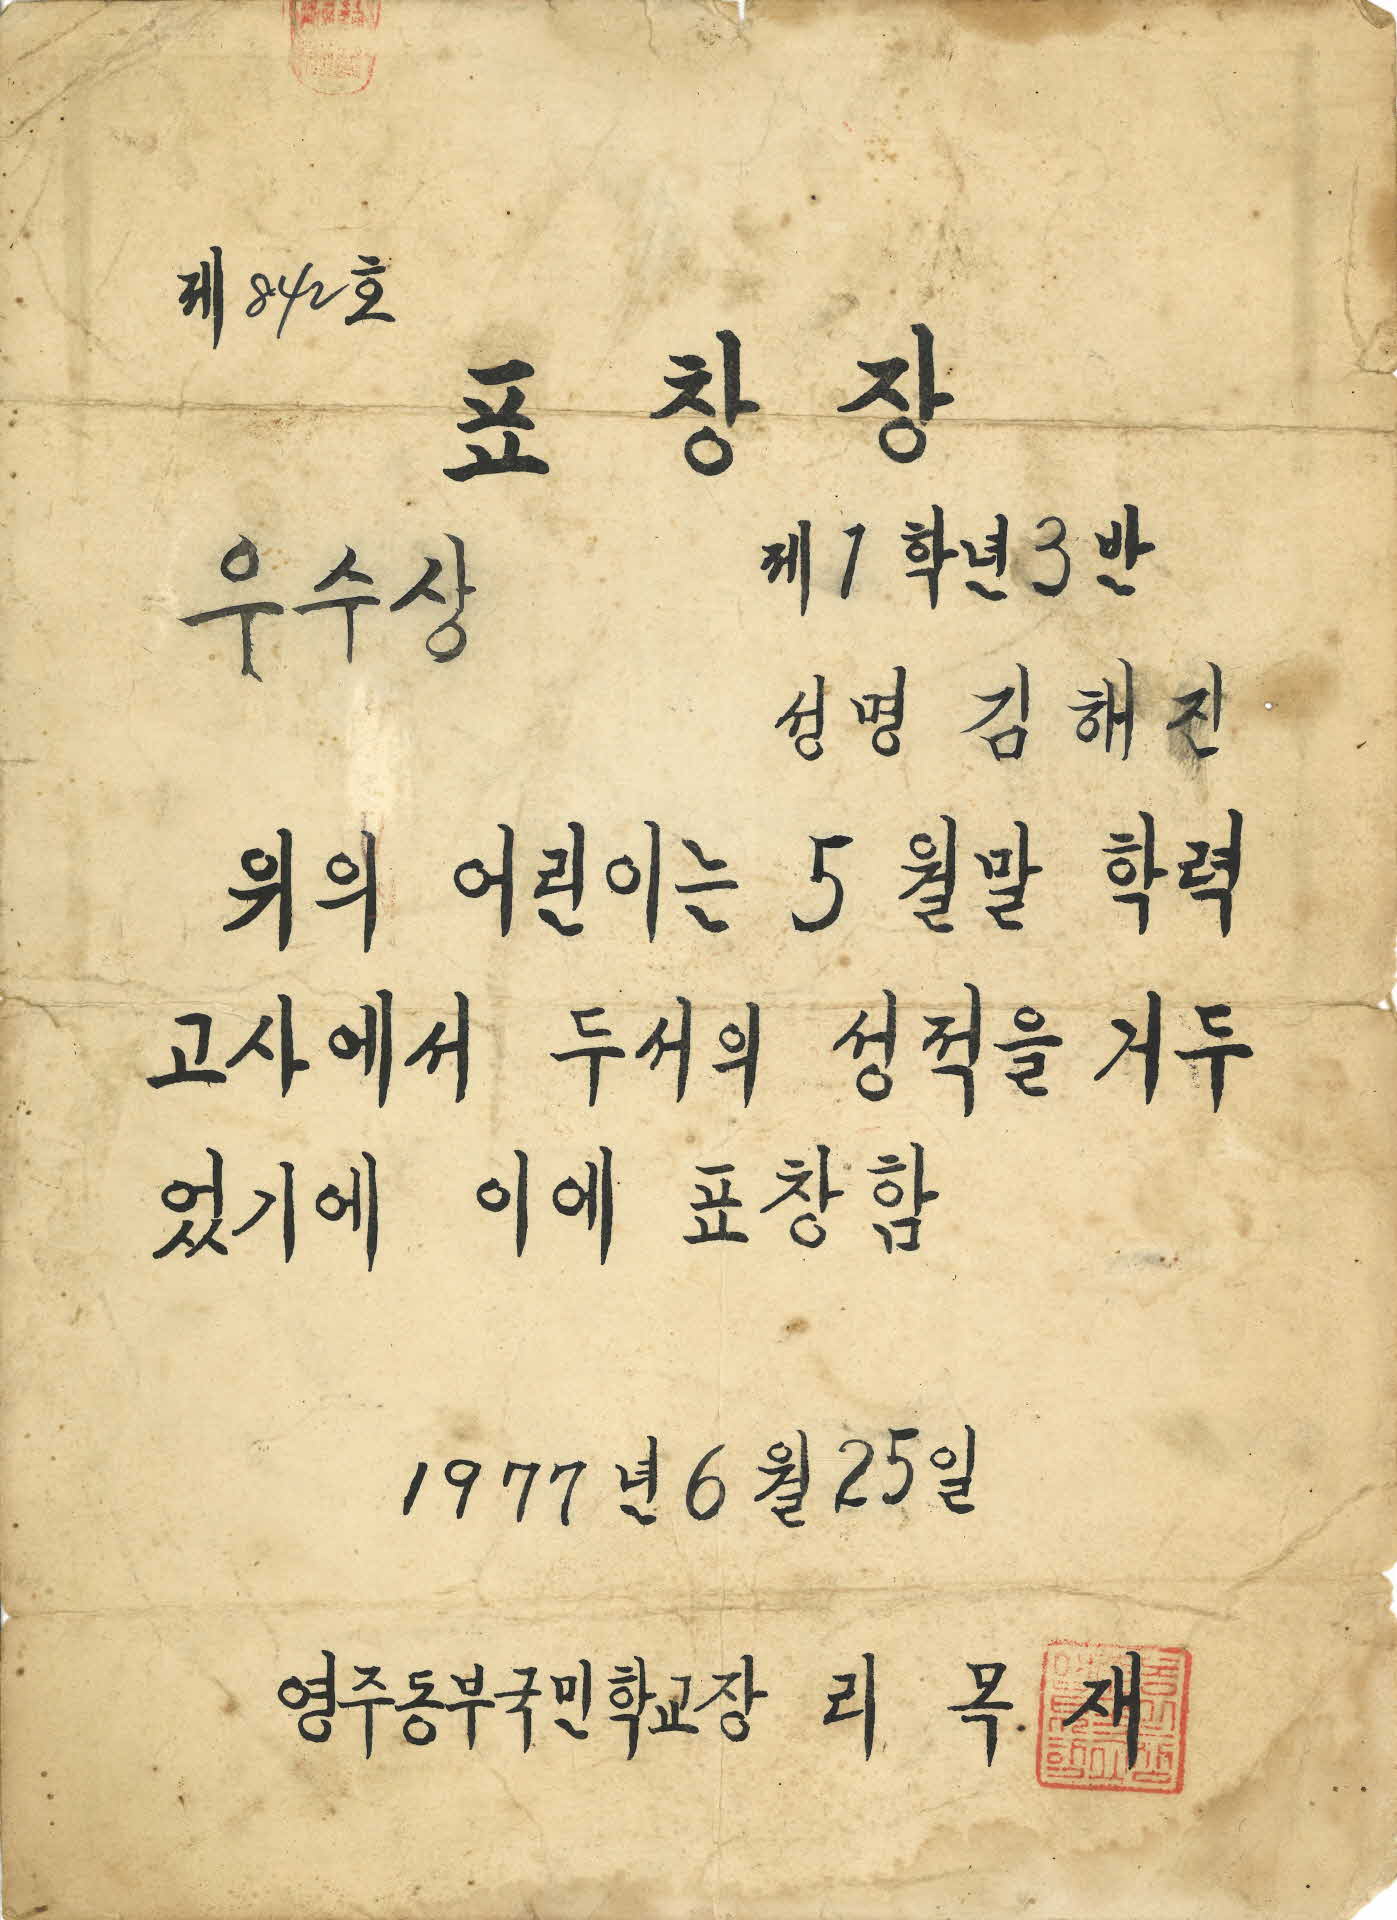 제842호
표창장
우수상
제1학년3반
성명 김해진
위의 어린이는 5월말 학력
고사에서 두서의 성적을 거두
었기에 이에 표창함
1977년 6월 25일
영주동부국민학교장 리목재